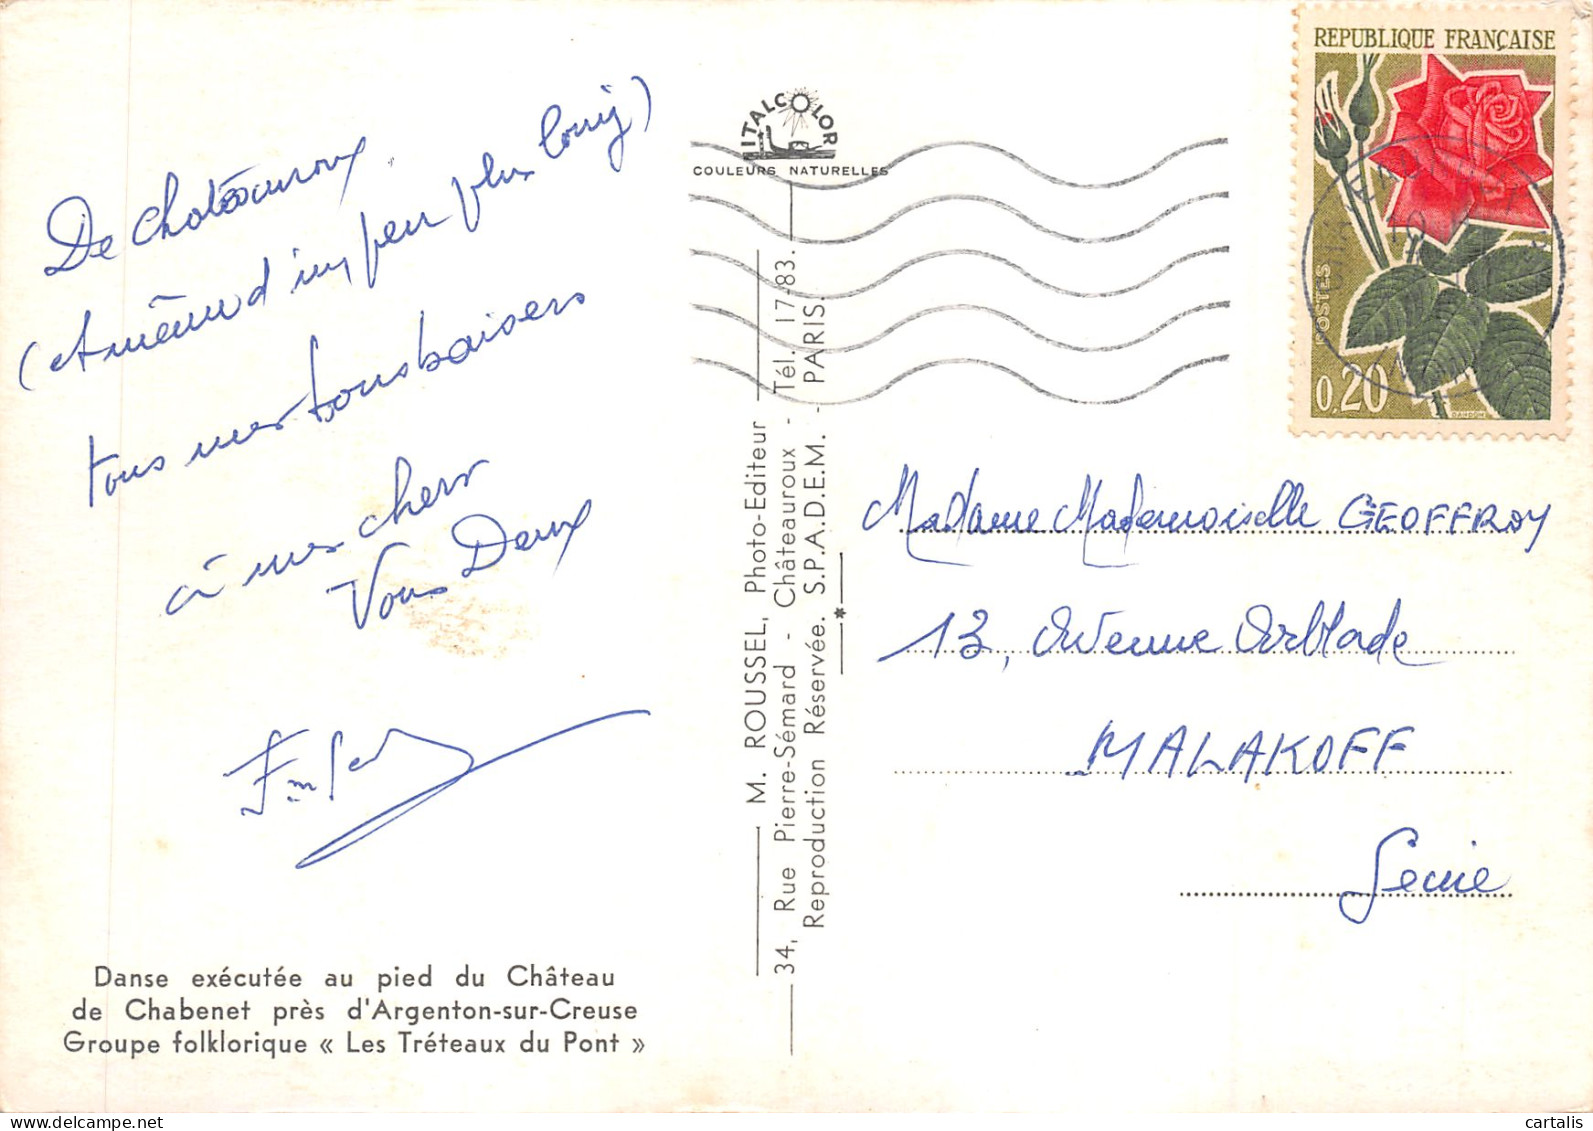 De Chateauroux
(et même d'un peu plus loin)
tous mes bons baisers
à mes chers
Vous Deux
Danse exécutée au pied du Château
de Chabenet près d'Argenton-sur-Creuse
Groupe folklorique « Les Tréteaux du Pont »
ITALCOLOR
COULEURS NATURELLES
M. ROUSSEL, Photo-Editeur
34, Rue Pierre-Sémard - Châteauroux - Tél. 17-83.
Reproduction Réservée. S.P.A.D.E.M. - PARIS.
REPUBLIQUE FRANÇAISE
POSTES
0,20
Madame Mademoiselle GEOFFROY
13, Avenue
MALAKOFF
Seine
cartalis
delcampe.net